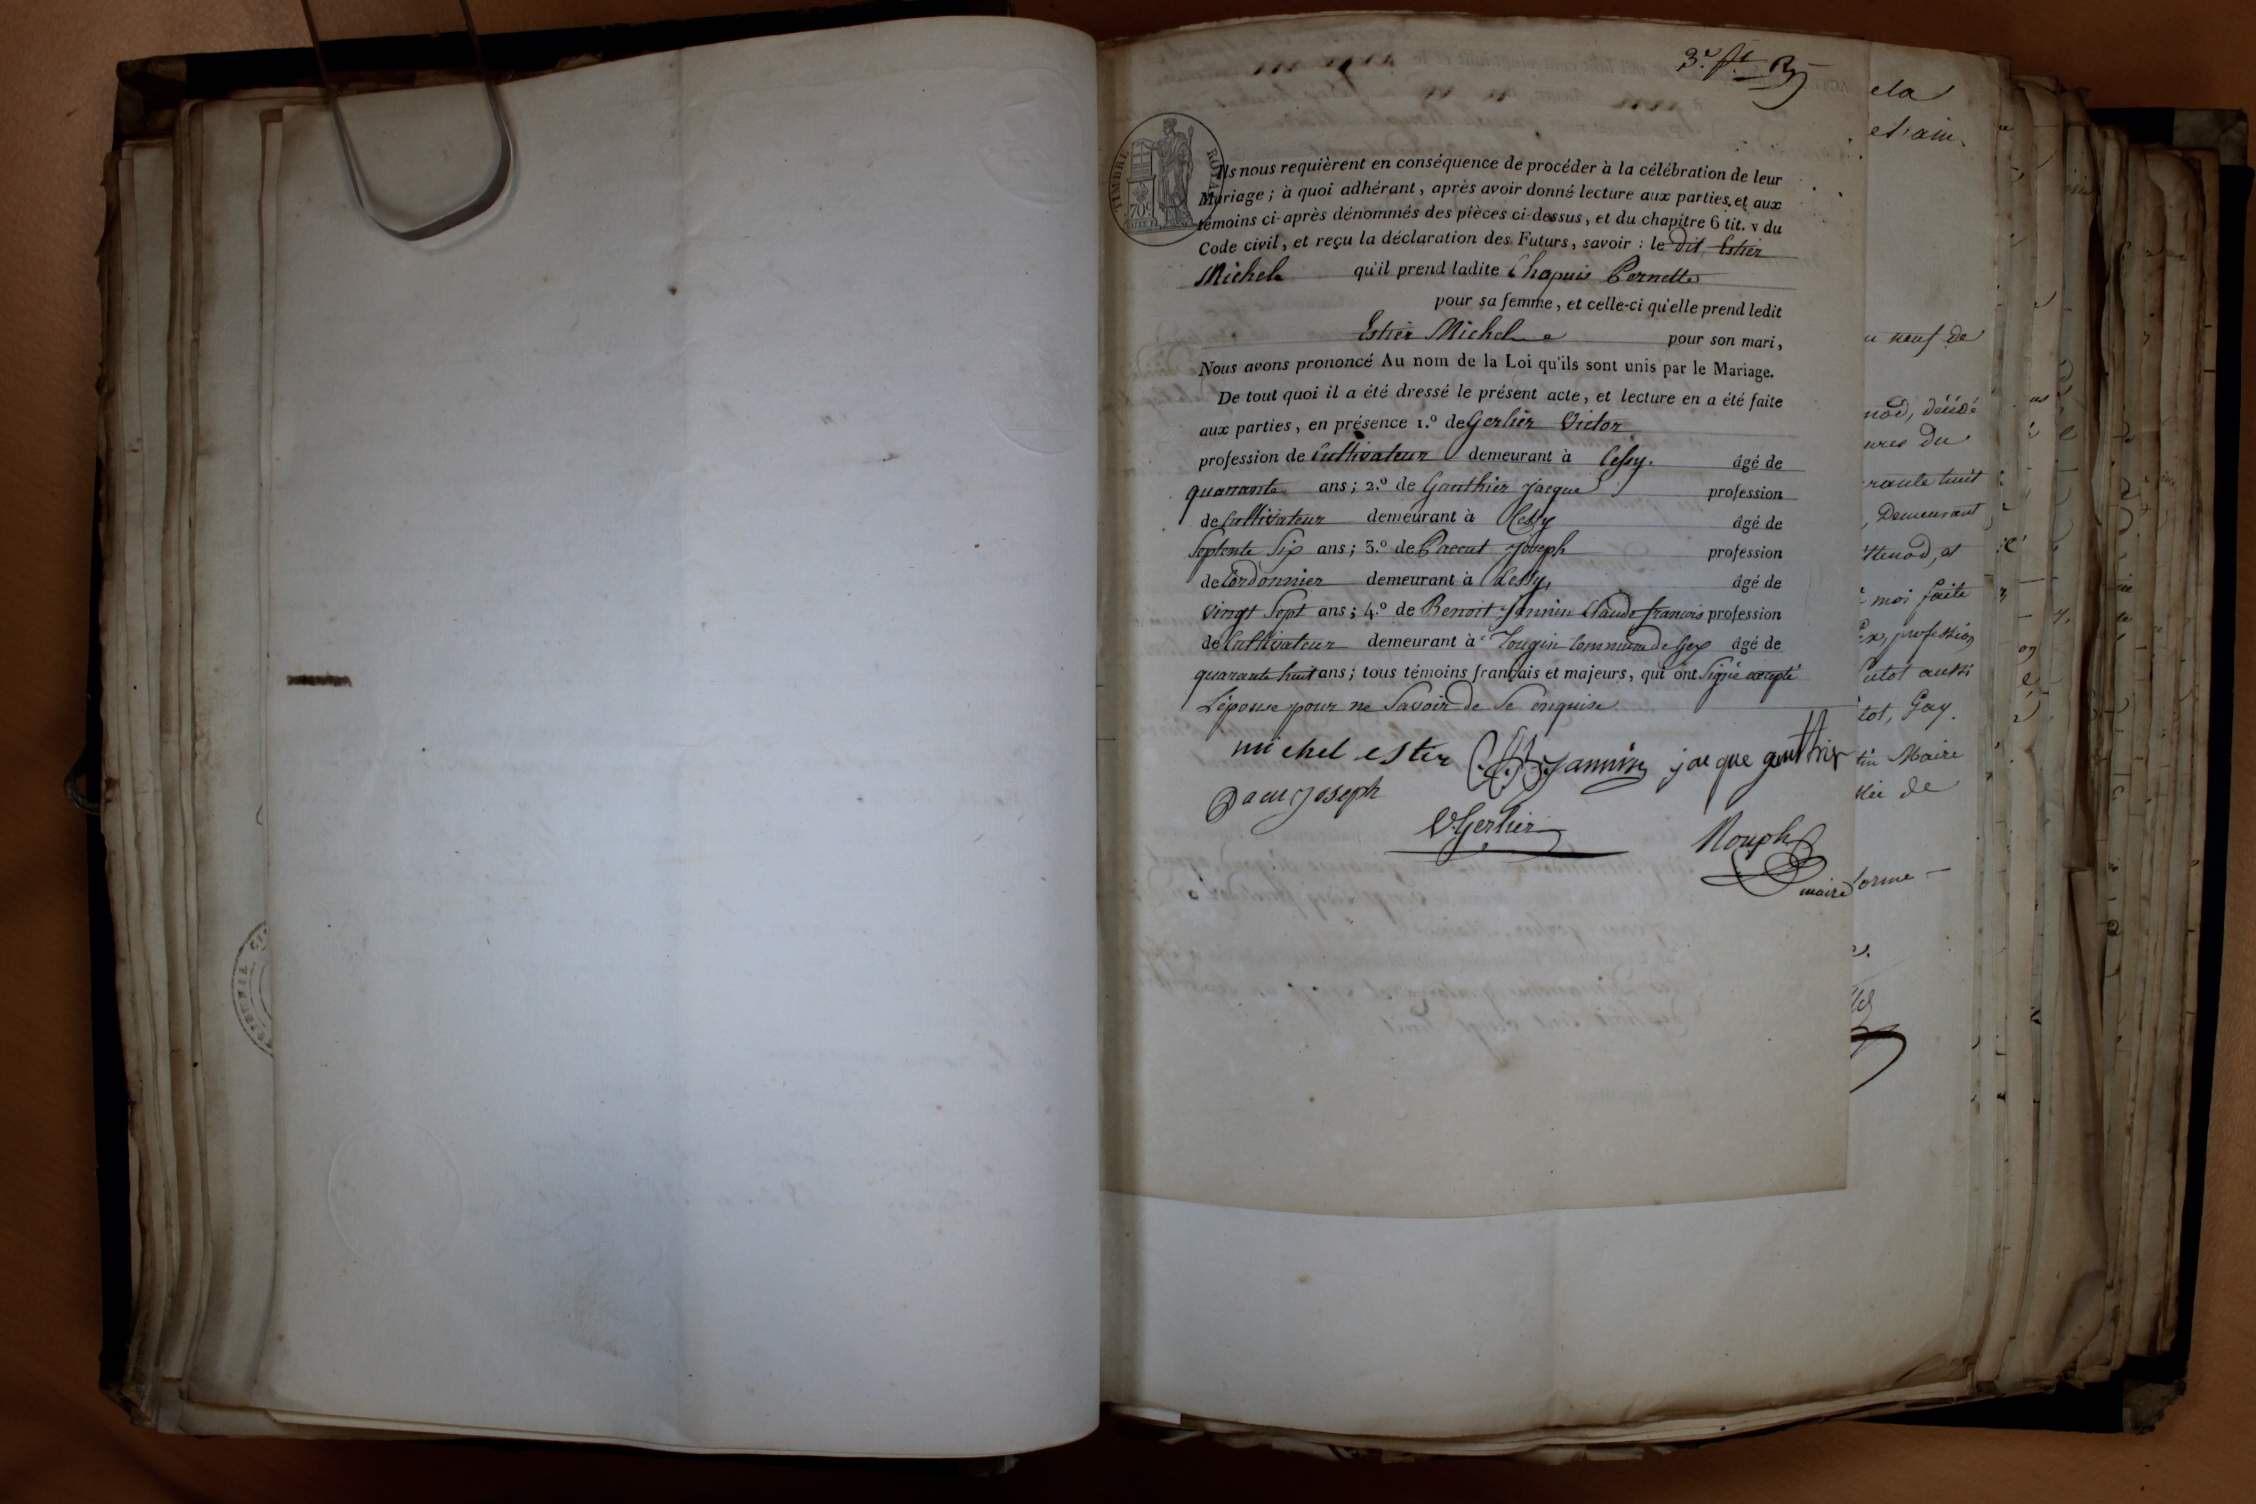 3.e f.t R
TIMBRE ROYAL
70c
Ils nous requièrent en conséquence de procéder à la célébration de leur
Mariage ; à quoi adhérant, après avoir donné lecture aux parties, et aux
témoins ci-après dénommés des pièces ci-dessus, et du chapitre 6 tit. v du
Code civil, et reçu la déclaration des Futurs, savoir : le dit Estier
Michel qu'il prend ladite Chapuis Pernette
pour sa femme, et celle-ci qu'elle prend ledit
Estier Michel pour son mari,
Nous avons prononcé Au nom de la Loi qu'ils sont unis par le Mariage.
De tout quoi il a été dressé le présent acte, et lecture en a été faite
aux parties, en présence 1.º de Gerlier Victor
profession de Cultivateur demeurant à Cessy. âgé de
quarrante ans ; 2.º de Gauthier Jacque profession
de Cultivateur demeurant à Cessy âgé de
Septente Six ans ; 3.º de Paccut Joseph profession
de Cordonnier demeurant à Cessy, âgé de
vingt Sept ans ; 4.º de Benoit-Jannin Claude françois profession
de Cultivateur demeurant à Tougin Commune de Gex âgé de
quarante huit ans ; tous témoins français et majeurs, qui ont Signé excepté
L'épouse pour ne Savoir de Ce enquise
michel estier Jannin jacque gauthier
Pacu Joseph
V. Gerlier
Rouph
maire
ela
et ain
u neuf de
nod, décédé
ures du
rante huit
, Demeurant
ttenod, et
moi faite
Ex, profession
utot aussi
tot, Gay.
tin Maire
lée de
forme
TRIBUNAL CI